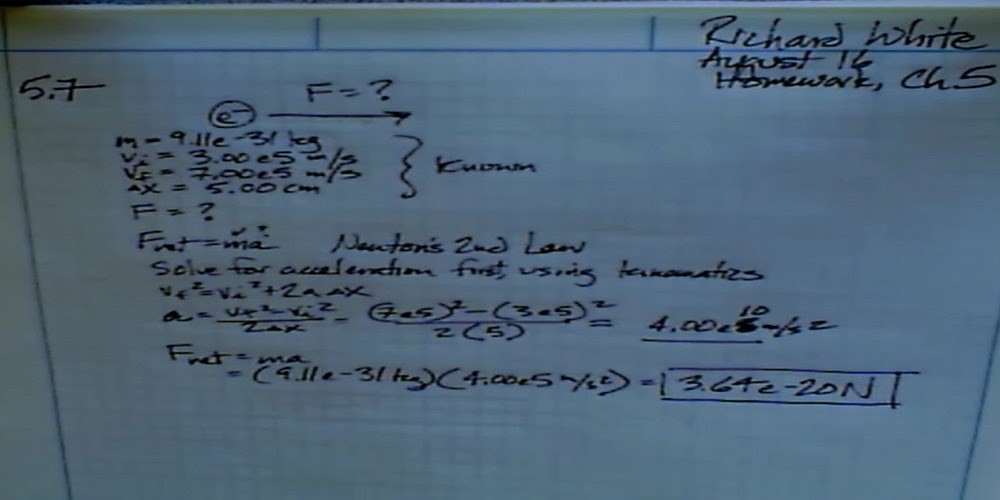 Richard White
August 16
Homework, Ch.5
5.7
F = ?
e-
m = 9.11e-31 kg
vi = 3.00e5 m/s
vf = 7.00e5 m/s
Δx = 5.00 cm
} Known
F = ?
Fnet = ma Newton's 2nd Law
Solve for acceleration first, using kinematics
vf² = vi² + 2aΔx
a = (vf² - vi²)/2Δx = ((7e5)² - (3e5)²)/2(5) = 4.00e10 m/s²
Fnet = ma
= (9.11e-31 kg)(4.00e5 m/s²) = 3.64e-20N